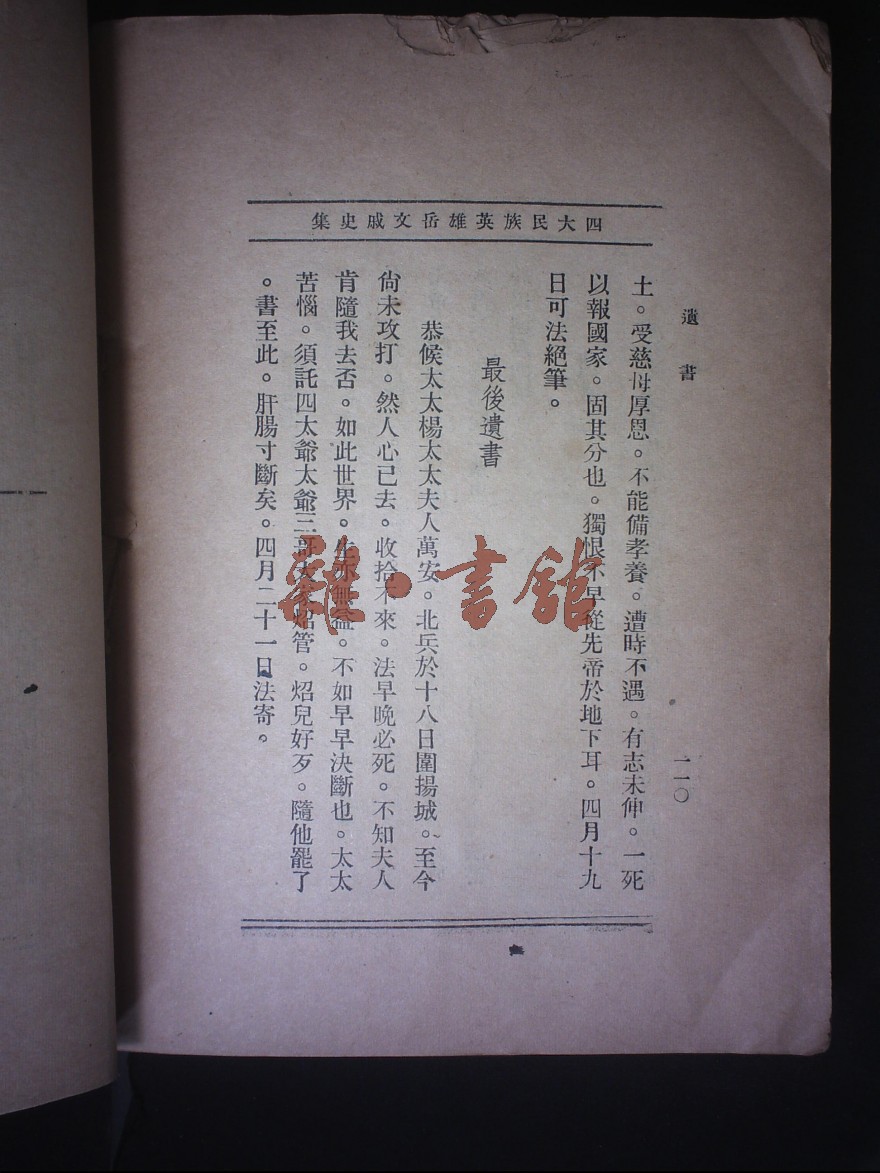 四大民族英雄岳文戚史集
遺書
一一〇
土。受慈母厚恩。不能備孝養。遭時不遇。有志未伸。一死
以報國家。固其分也。獨恨不早從先帝於地下耳。四月十九
日可法絕筆。
最後遺書
恭候太太楊太太夫人萬安。北兵於十八日圍揚城。至今
尙未攻打。然人心已去。收拾不來。法早晚必死。不知夫人
肯隨我去否。如此世界。生亦無益。不如早早決斷也。太太
苦惱。須託四太爺太爺三哥大家炤管。炤兒好歹。隨他罷了
。書至此。肝腸寸斷矣。四月二十一日法寄。
雜·書館